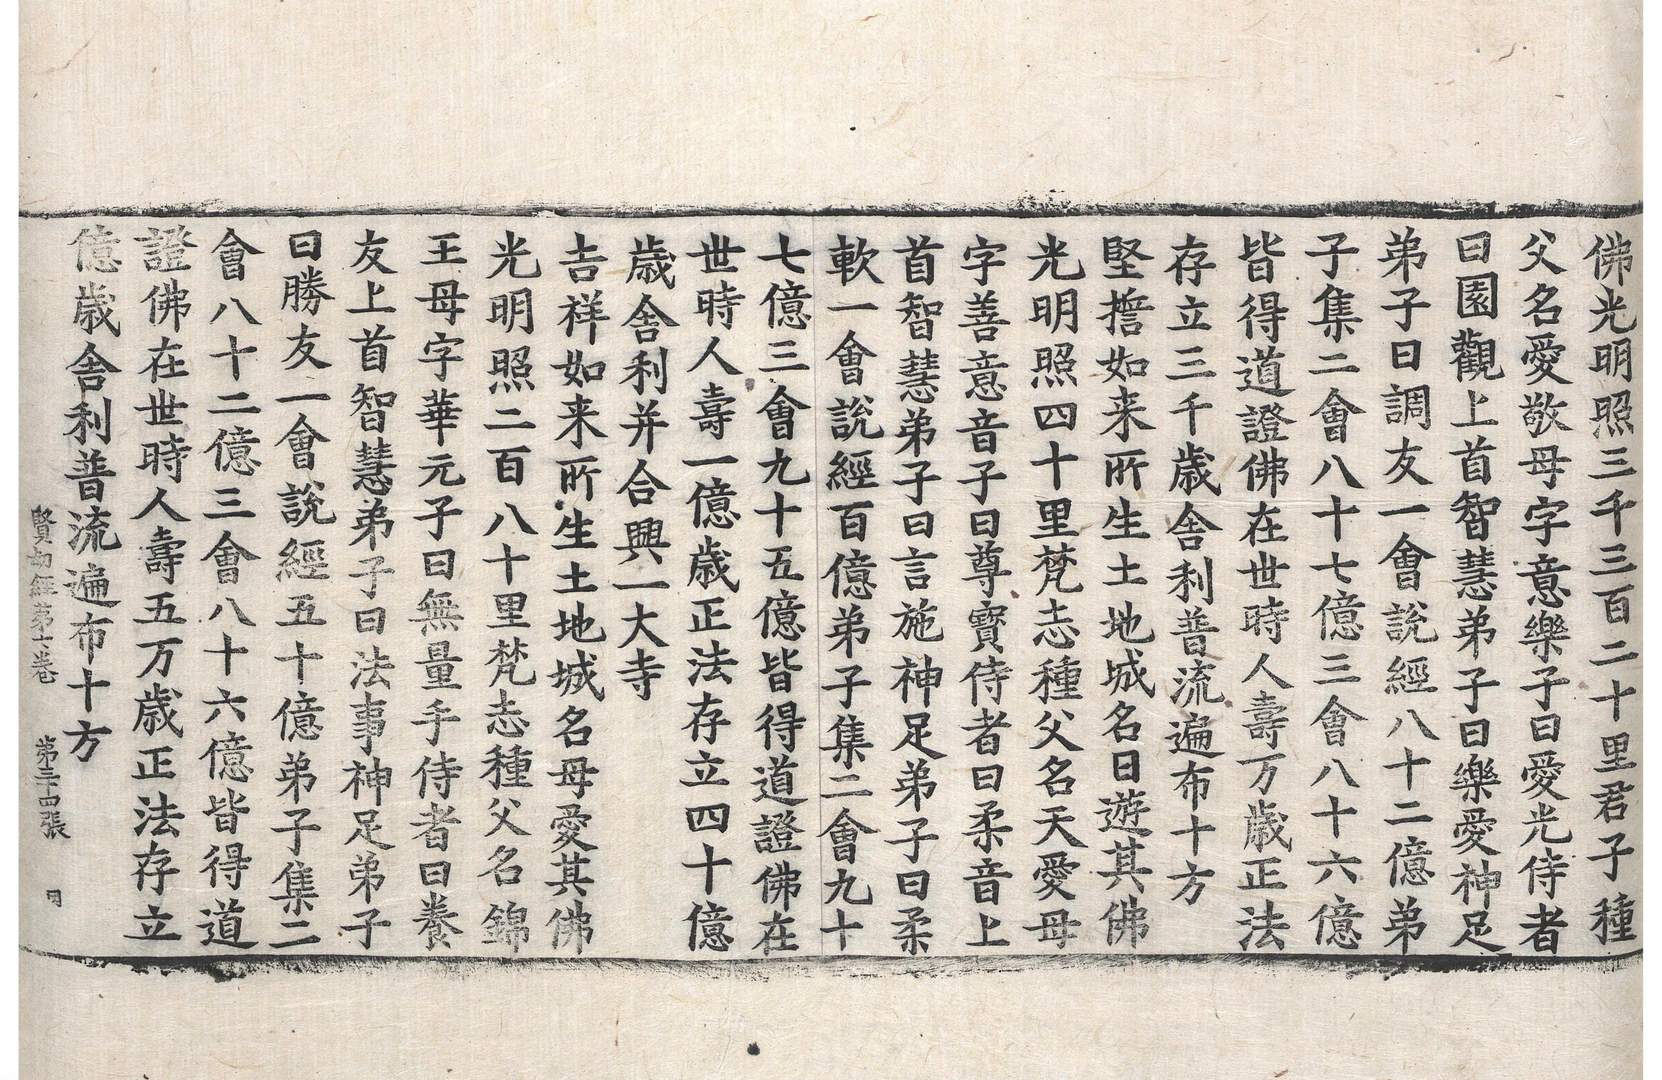 佛光明照三千三百二十里君子種
父名愛敬母字意樂子曰愛光侍者
曰園觀上首智慧弟子曰樂愛神足
弟子曰調友一會說經八十二億弟
子集二會八十七億三會八十六億
皆得道證佛在世時人壽万歲正法
存立三千歲舍利普流遍布十方
堅擔如来所生土地城名曰遊其佛
光明照四十里梵志種父名天愛母
字善意音子曰尊寶侍者曰柔音上
首智慧弟子曰言施神足弟子曰柔
軟一會說經百億弟子集二會九十
七億三會九十五億皆得道證佛在
世時人壽一億歲正法存立四十億
歲舍利并合興一大寺
吉祥如来所生土地城名母愛其佛
光明照二百八十里梵志種父名錦
王母字華元子曰無量手侍者曰養
友上首智慧弟子曰法事神足弟子
曰勝友一會說經五十億弟子集二
會八十二億三會八十六億皆得道
證佛在世時人壽五万歲正法存立
億歲舍利普流遍布十方
賢劫經第六卷 第三十四張